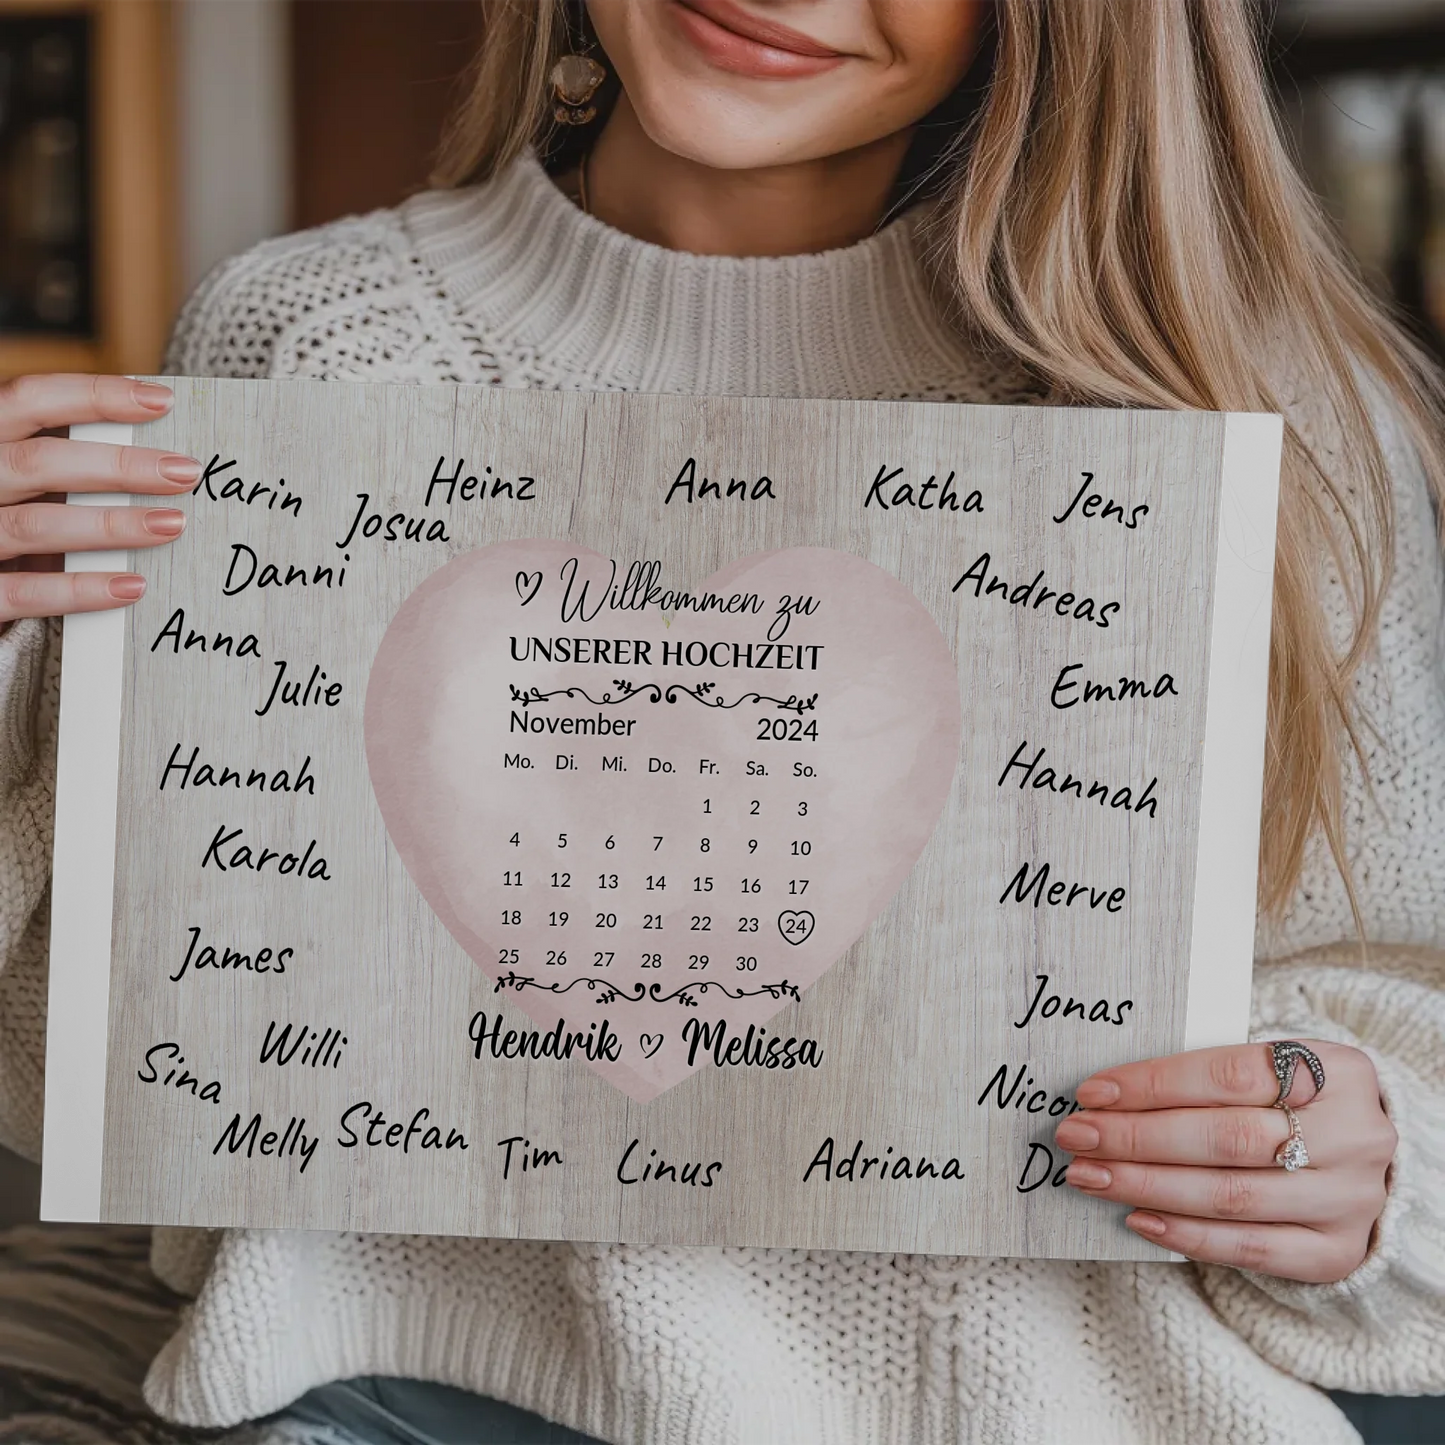 Karin
Heinz
Anna
Katha
Jens
Josua
Danni
Andreas
Anna
Julie
Emma
Hannah
Hannah
Karola
Merve
James
Jonas
Willi
Sina
Melly
Stefan
Tim
Linus
Adriana
♡ Willkommen zu
UNSERER HOCHZEIT
November 2024
Mo. Di. Mi. Do. Fr. Sa. So.
1 2 3
4 5 6 7 8 9 10
11 12 13 14 15 16 17
18 19 20 21 22 23 24
25 26 27 28 29 30
Hendrik ♡ Melissa